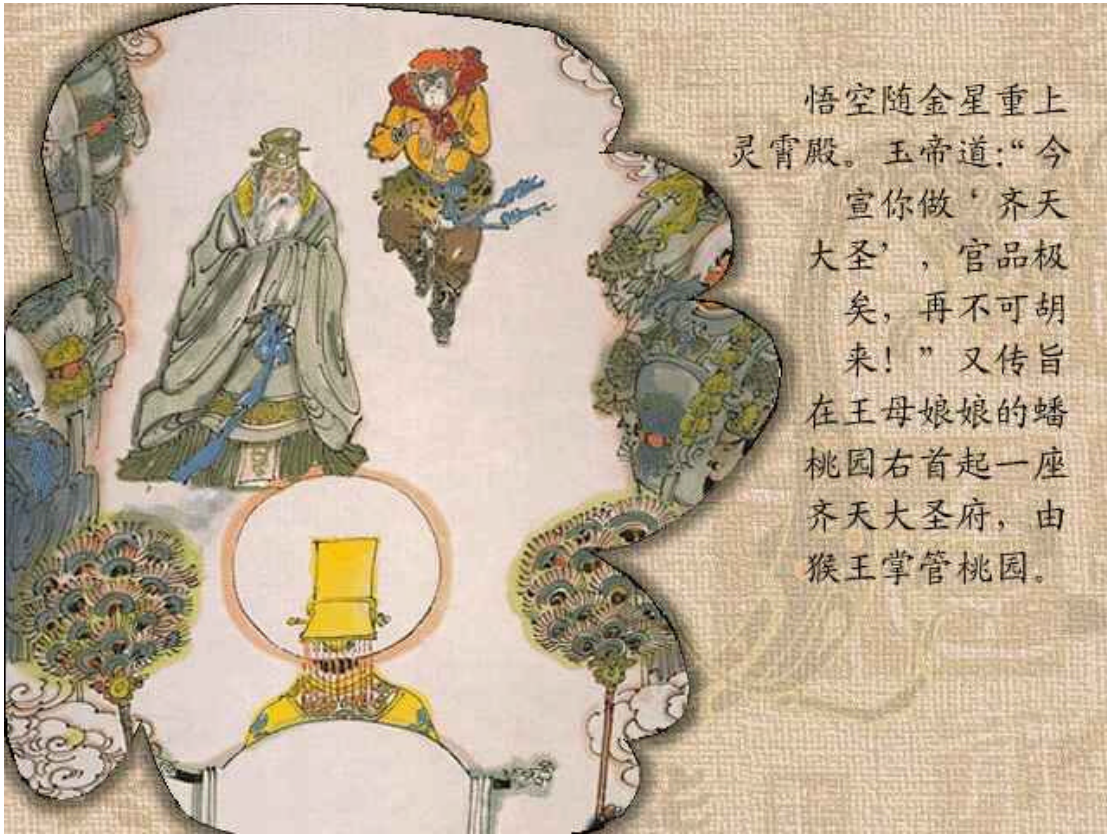 悟空随金星重上
灵霄殿。玉帝道:“今
宣你做‘齐天
大圣’，官品极
矣，再不可胡
来！”又传旨
在王母娘娘的蟠
桃园右首起一座
齐天大圣府，由
猴王掌管桃园。